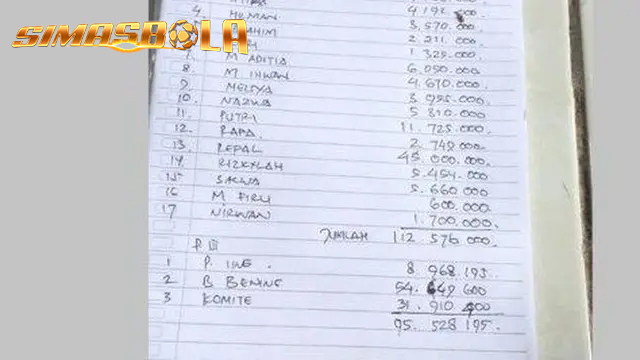 SIMASBOLA
4. HEMAN 4.192.000
3.570.000
2.211.000
7 M ADITIA 1.329.000
8. M. IHWAN 6.090.000
9. MELSYA 4.670.000
10. NAZWA 3.955.000.
11. PUTRI 5.810.000
12. RAPA. 11.725.000
13. REPAL 2.749.000
14 RIZKYLAH 45.000.000
15 SALWA 5.454.000
16 M FIRLI 5.660.000
17 NIRWAN 600.000
1.700.000
JUMLAH 112.576 000.
P. III
1 P. IING. 8.968.195
2 B BENING 54.649.600
3 KOMITE 31.910.400
95.528.195.